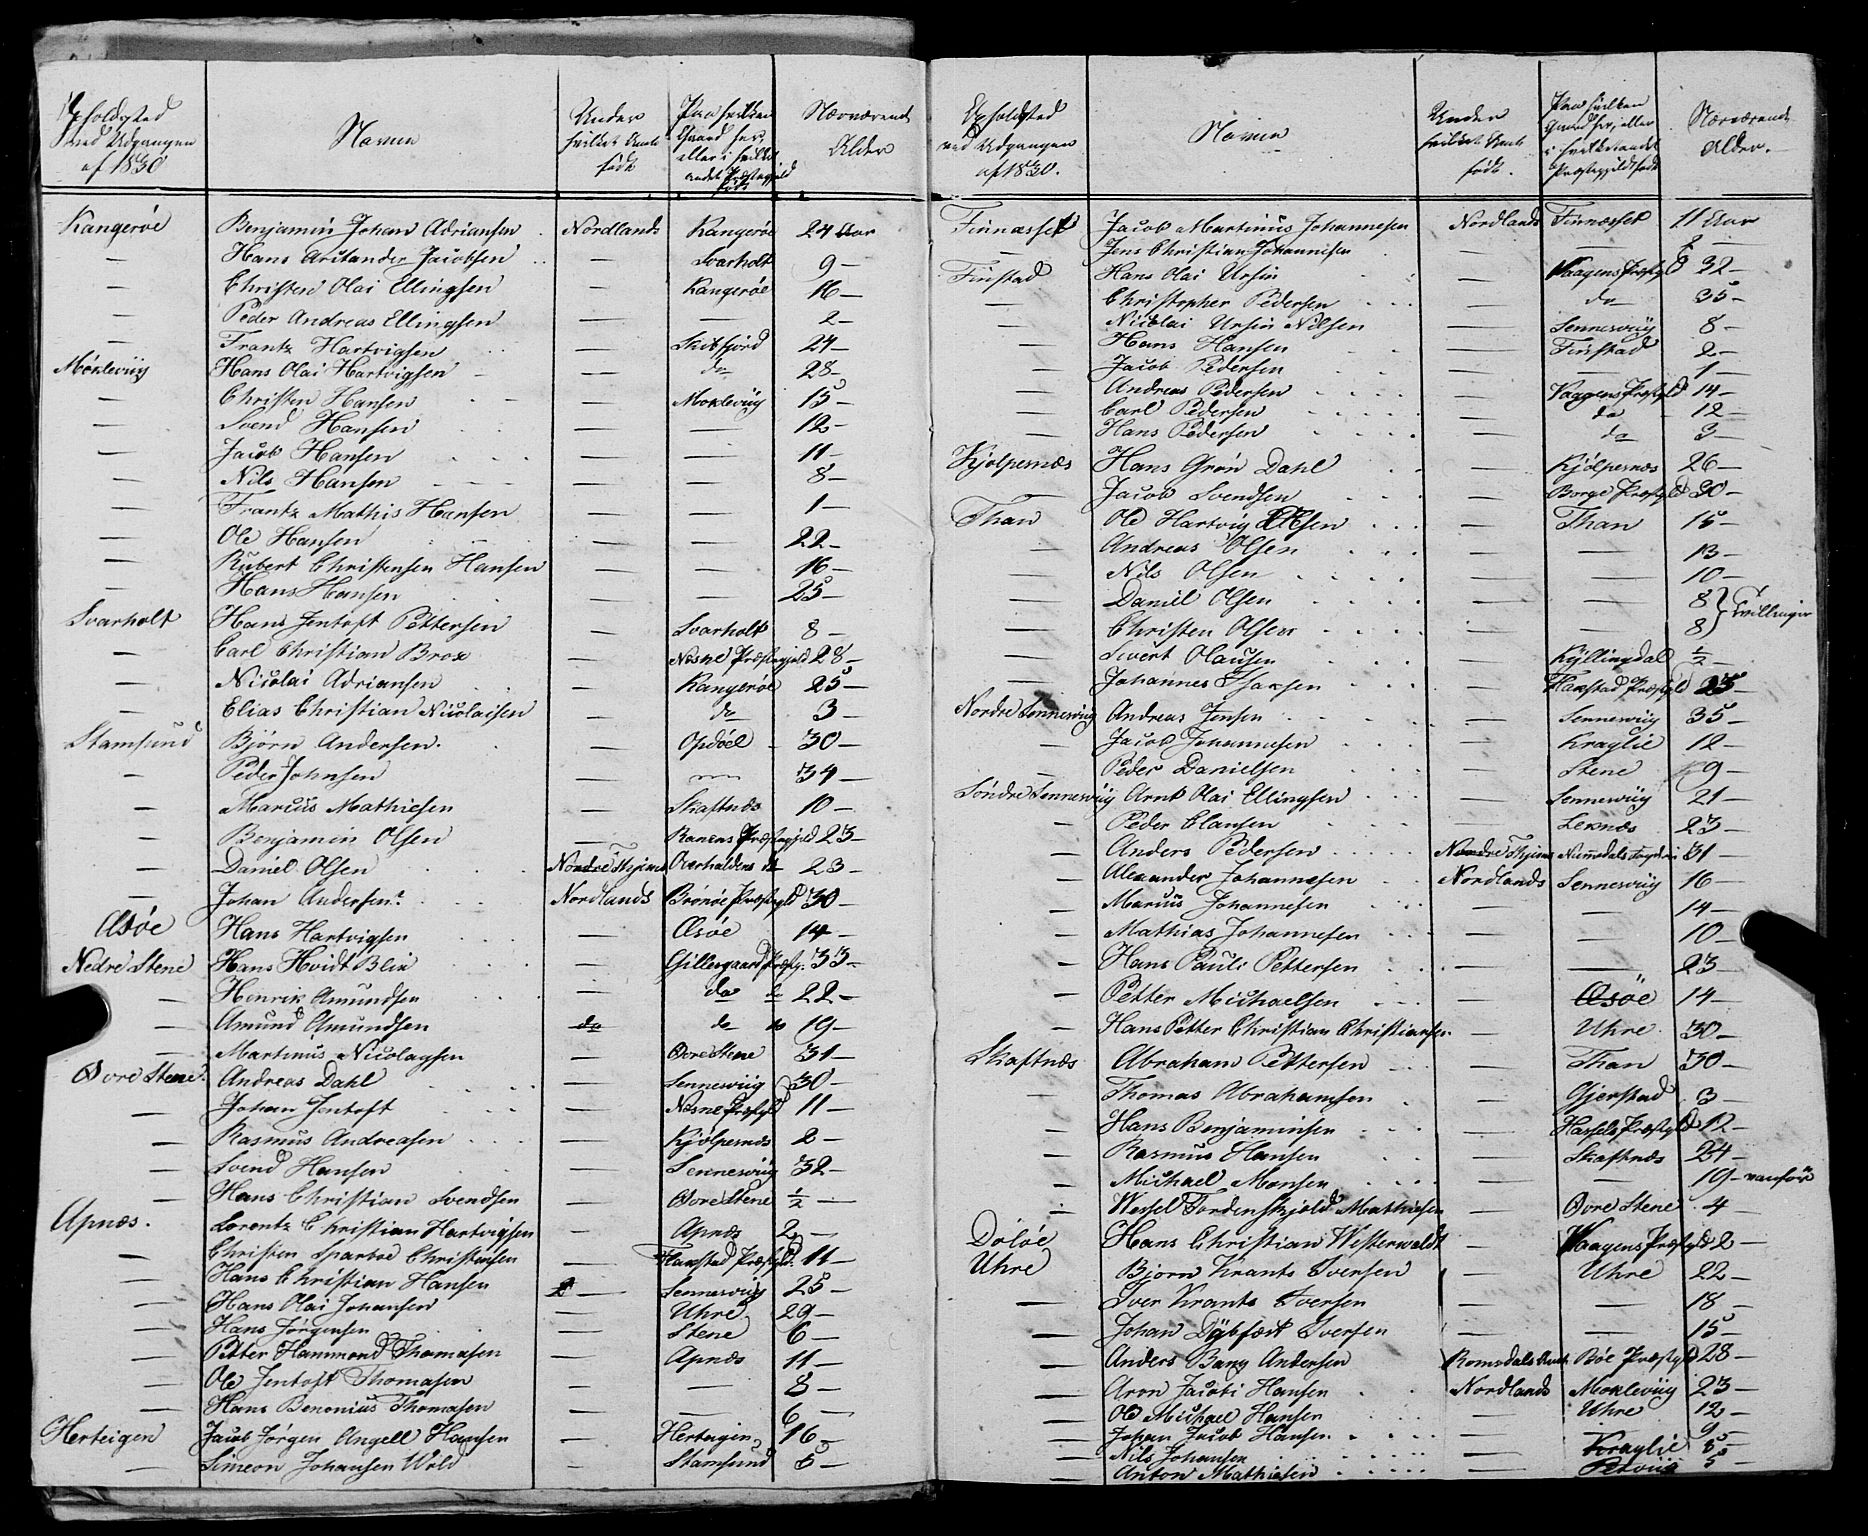 Opholdsted ved Udgangen af 1830 | Navne | Under hvilket Amt født | Paa hvilken Gaard her, eller i hvilket andet Præstegjeld født | Nærværende Alder
Kangerøe | Benjamin Johan Adriansen | Nordlands | Kangerøe | 24 Aar
— | Hans Aristander Jacobsen | — | Svarholt | 9 —
— | Christen Olai Ellingsen | — | Kangerøe | 16 —
— | Peder Andreas Ellingsen | — | — | 2 —
— | Frantz Hartvigsen | — | Skitfjord | 24 —
Møklevüg | Hans Olai Hartvigsen | — | do | 28 —
— | Christen Hansen | — | Moklevüg | 15 —
— | Svend Hansen | — | — | 12 —
— | Jacob Hansen | — | — | 11 —
— | Nils Hansen | — | — | 8 —
— | Frantz Mathis Hansen | — | — | 1 —
— | Ole Hansen | — | — | 22 —
— | Rubert Christensen Hansen | — | — | 16 —
— | Hans Hansen | — | — | 25 —
Svarholt | Hans Jentoft Pettersen | — | Svarholt | 8 —
— | Carl Christian Brox | — | Nesne Præstegjeld | 28 —
— | Nicolai Adriansen | — | Kangerøe | 25 —
— | Elias Christian Nicolaisen | — | do | 3 —
Stamsund | Bjørn Andersen | — | Opdøel | 30 —
— | Peder Johnsen | — | — | 34 —
— | Marcus Mathiesen | — | Skaftnæs | 10 —
— | Benjamin Olsen | — | Ranens Præstegjeld | 23 —
— | Daniel Olsen | Nordre Thjems | Overhaldens do | 23 —
— | Johan Andersen | Nordlands | Brønøe Præstgjld | 30 —
Æsøe | Hans Hartvigsen | — | Æsøe | 14 —
Nedre Stene | Hans Hvidt Blix | — | Gillesgaard Præstg. | 33 —
— | Henrik Amundsen | — | do do | 22 —
— | Amund Amundsen | do | do do | 19 —
— | Martinus Nicolaysen | — | Øvre Stene | 31 —
Øvre Stene | Andreas Dahl | — | Sennesvüg | 30 —
— | Johan Jentoft | — | Nesne Præstgjld | 11 —
— | Rasmus Andreasen | — | Kjølpernæs | 2 —
— | Svend Hansen | — | Sennesvüg | 32 —
— | Hans Christian Svendsen | — | Øvre Stene | ½ —
Apnæs. | Lorentz Christian Hartvigsen | — | Apnæs | 2 —
— | Christen Sparboe Christensen | — | Flakstad Præstgld. | 11 —
— | Hans Christian Hansen | — | Sennesvüg | 25 —
— | Hans Olai Johansen | — | Uhre | 29 —
— | Hans Jørgensen | — | Stene | 6 —
— | Petter Hammond Thomasen | — | Apnæs | 11 —
— | Ole Jentoft Thomasen | — | — | 8 —
— | Hans Benonius Thomasen | — | — | 6 —
Herteigen | Jacob Jørgen Angell Hansen | — | Herteigen | 16 —
— | Simeon Johansen Wold | — | Stamsund | 5 —
Opholdsted ved Udgangen af 1830. | Navne | Under hvilket Amt født. | Paa hvilken Gaard her, eller i hvilket andet Præstegjeld født | Nærværende Alder.
Finnæsset | Jacob Martinus Johannesen | Nordlands | Finnæsset | 11 Aar
— | Jens Christian Johannesen | — | — | 8 —
Finstad | Hans Olai Ursin | — | Vaagens Præstgld | 32 —
— | Christopher Pedersen | — | do | 35 —
— | Nicolai Ursin Nilsen | — | Sennesvüg | 8 —
— | Hans Hansen | — | Finstad | 2 —
— | Jacob Pedersen | — | — | 1 —
— | Andreas Pedersen | — | Vaagens Præstgld | 14 —
— | Carl Pedersen | — | do | 12 —
— | Hans Pedersen | — | do | 3 —
Kjølpernæs | Hans Grøn Dahl | — | Kjølpernæs | 26 —
— | Jacob Svendsen | — | Borge Præstgld | 30 —
Than | Ole Hartvig Olsen | — | Than | 15 —
— | Andreas Olsen | — | — | 13 —
— | Nils Olsen | — | — | 10 —
— | Daniel Olsen | — | — | 8 } Tvillinger
— | Christen Olsen | — | — | 8 }
— | Sivert Olausen | — | Kyllingdal | ½ —
— | Johannes Isaksen | — | Flakstad Præstgld | 25 —
Nordre Sennesvüg | Andreas Jensen | — | Sennesvüg | 35 —
— | Jacob Johannesen | — | Kraglie | 12 —
— | Peder Danielsen | — | Stene | 9 —
Søndre Sennesvüg | Arnt Olai Ellingsen | — | Sennesvüg | 21 —
— | Peder Clausen | — | Leknæs | 23 —
— | Anders Pedersen | Nordre Thjems | Numedals Fogderi | 31 —
— | Alexander Johannesen | Nordlands | Sennesvüg | 16 —
— | Marcus Johannesen | — | — | 14 —
— | Mathias Johannesen | — | — | 10 —
— | Hans Pauli Pettersen | — | — | 23 —
— | Petter Michaelsen | — | Æsøe | 14 —
— | Hans Petter Christian Christiansen | — | Uhre | 30 —
Skaftnæs | Abraham Pettersen | — | Than | 30 —
— | Thomas Abrahamsen | — | Gjerstad | 3 —
— | Hans Benjaminsen | — | Hassels Præstgld | 12 —
— | Rasmus Hansen | — | Skaftnæs | 24 —
— | Michael Monsen | — | — | 19 — vanfør
— | Wessel Tordenskjold Mathiesen | — | Øvre Stene | 4 —
Døløe | Hans Christian Westerwaldt | — | Vaagens Præstgld | 2 —
Uhre | Bjørn Krants Iversen | — | Uhre | 22 —
— | Iver Krants Iversen | — | — | 18 —
— | Johan Dybfest Iversen | — | — | 15 —
— | Anders Bang Andersen | Romsdals Amt | Bøe Præstgld | 28 —
— | Aron Jacobi Hansen | Nordlands | Moklevüg | 23 —
— | Ole Michael Hansen | — | Uhre | 12 —
— | Johan Jacob Hansen | — | — | 9 —
— | Nils Johansen | — | Kraglie | 8 —
— | Anton Mathiesen | — | Petvüg | 5 —